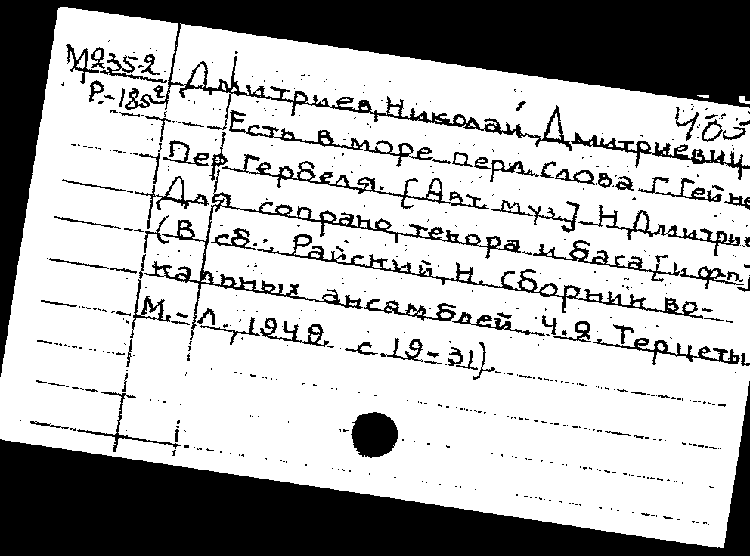 М235-2
Р-18s² Дмитриев, Николай Дмитриевич
483
Есть в море перл. Слова Г. Гейне
Пер. Гербеля. [Авт. муз.] Н. Дмитрие
Для сопрано, тенора и баса [и фп.]
(В сб.: Райский, Н. Сборник во-
кальных ансамблей. Ч.2. Терцеты
М.-Л., 1949. с. 19-31).